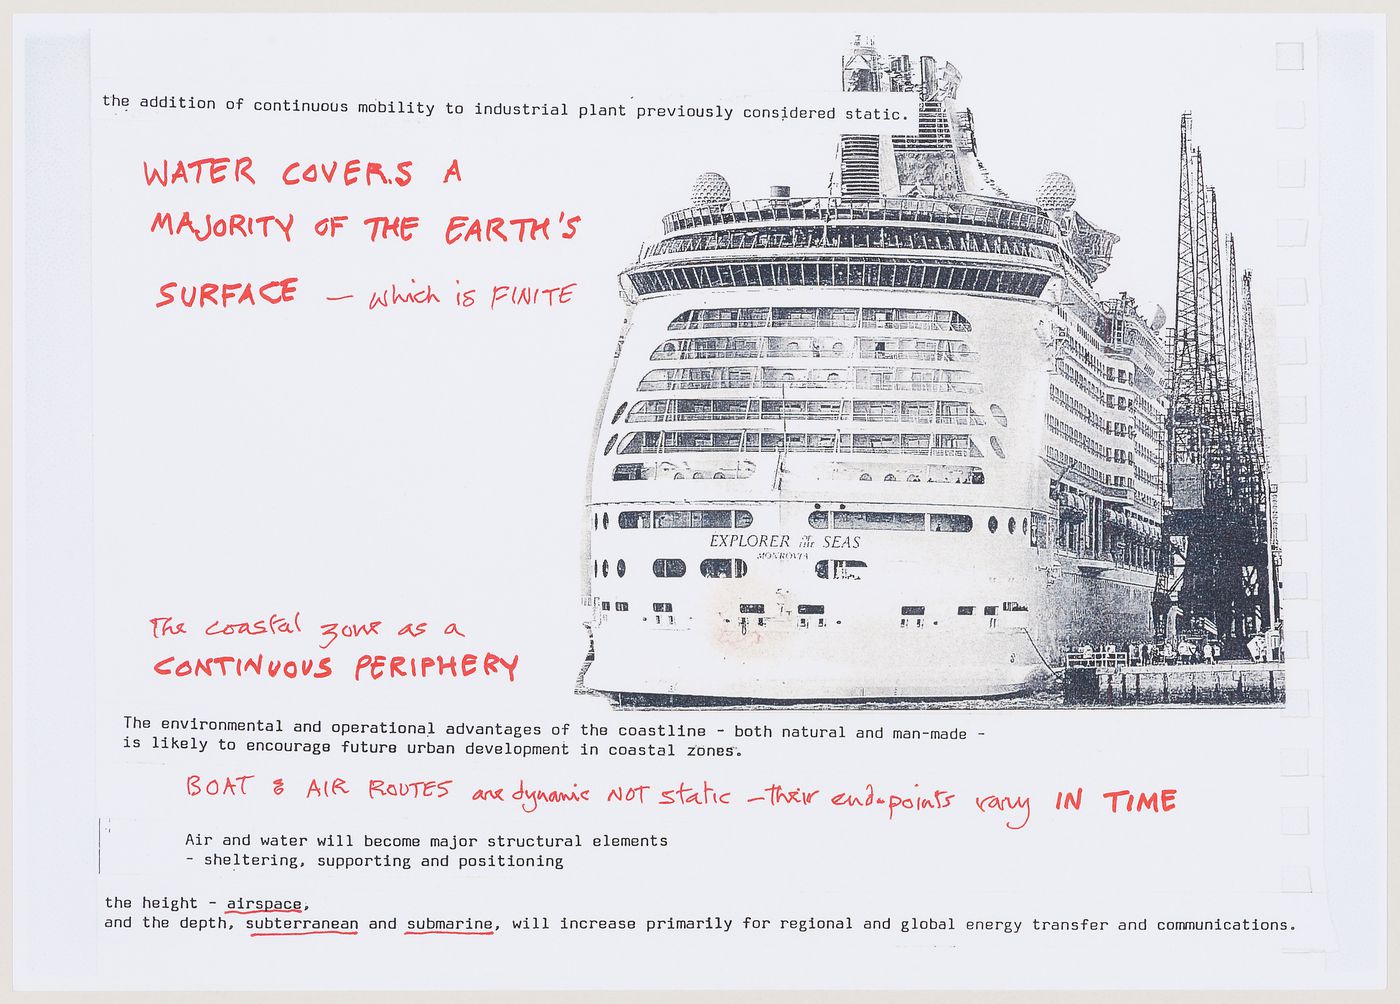 the addition of continuous mobility to industrial plant previously considered static.
WATER COVERS A
MAJORITY OF THE EARTH'S
SURFACE – which is FINITE
EXPLORER OF THE SEAS
MONROVIA
The coastal zone as a
CONTINUOUS PERIPHERY
The environmental and operational advantages of the coastline - both natural and man-made -
is likely to encourage future urban development in coastal zones.
BOAT & AIR ROUTES are dynamic NOT static – their end-points vary IN TIME
Air and water will become major structural elements
- sheltering, supporting and positioning
the height - airspace,
and the depth, subterranean and submarine, will increase primarily for regional and global energy transfer and communications.